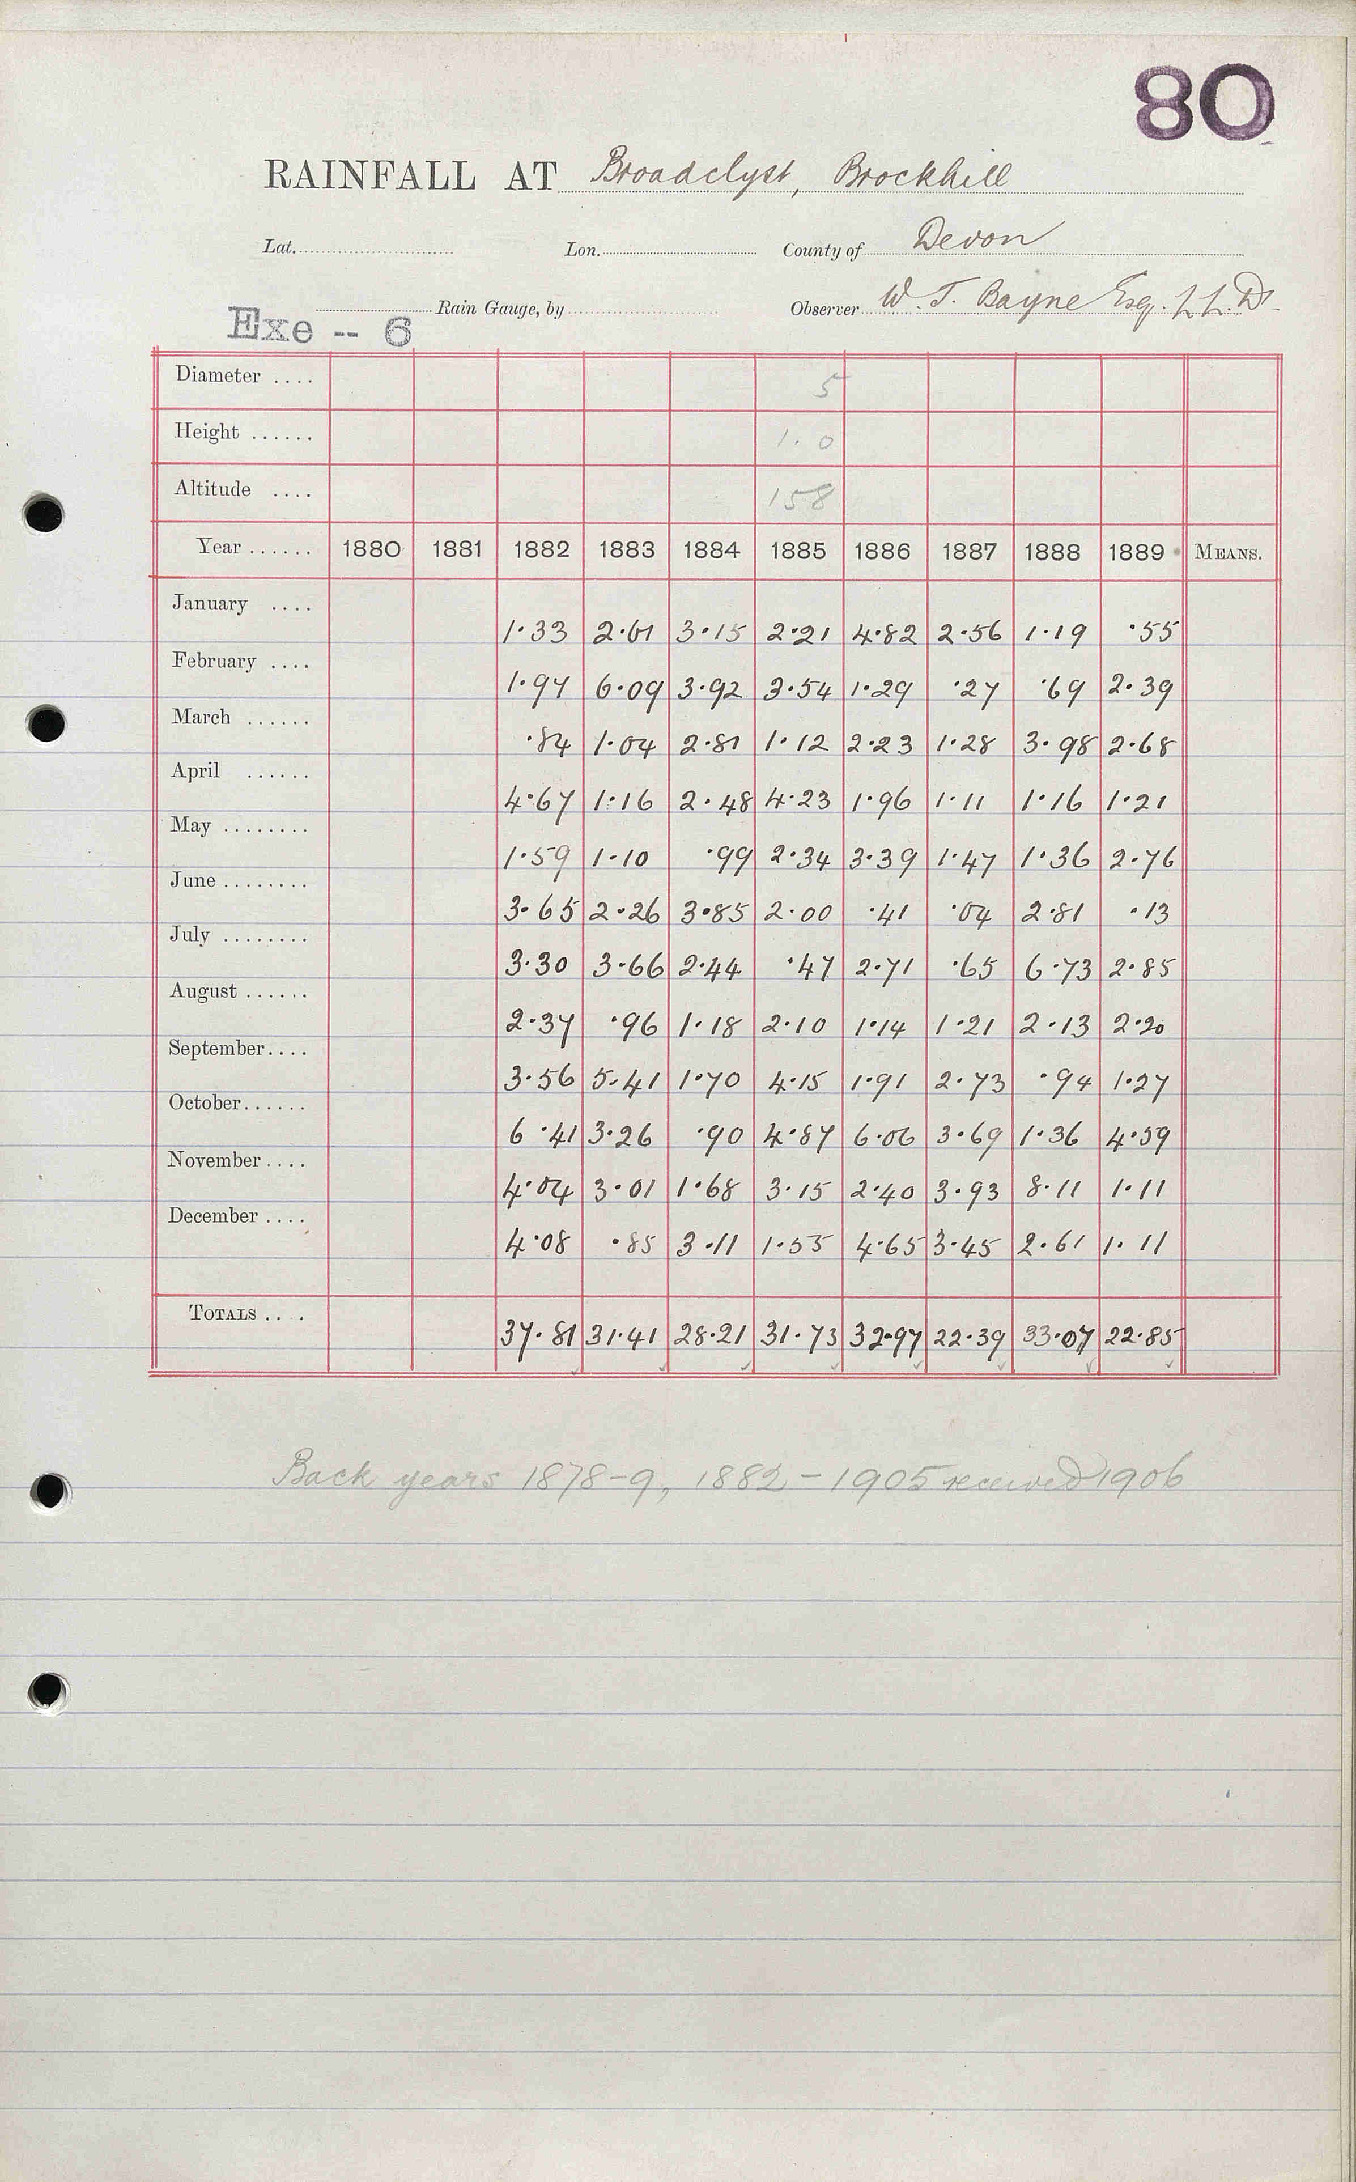 80
RAINFALL AT Broadclyst, Brockhill
Lat. Lon. County of Devon
Rain Gauge, by Observer W. T. Bayne Esq. LL.D.
Exe -- 6
Diameter .... 5
Height ...... 1.0
Altitude .... 158
Year ...... 1880 1881 1882 1883 1884 1885 1886 1887 1888 1889 MEANS.
January .... 1.33 2.61 3.15 2.21 4.82 2.56 1.19 .55
February .... 1.97 6.09 3.92 3.54 1.29 .27 .69 2.39
March ...... .84 1.04 2.81 1.12 2.23 1.28 3.98 2.68
April ...... 4.67 1.16 2.48 4.23 1.96 1.11 1.16 1.21
May ........ 1.59 1.10 .99 2.34 3.39 1.47 1.36 2.76
June ........ 3.65 2.26 3.85 2.00 .41 .04 2.81 .13
July ........ 3.30 3.66 2.44 .47 2.71 .65 6.73 2.85
August ...... 2.37 .96 1.18 2.10 1.14 1.21 2.13 2.20
September.... 3.56 5.41 1.70 4.15 1.91 2.73 .94 1.27
October...... 6.41 3.26 .90 4.87 6.06 3.69 1.36 4.59
November.... 4.04 3.01 1.68 3.15 2.40 3.93 8.11 1.11
December .... 4.08 .85 3.11 1.55 4.65 3.45 2.61 1.11
TOTALS .... 37.81 31.41 28.21 31.73 32.97 22.39 33.07 22.85
Back years 1878-9, 1882-1905 received 1906